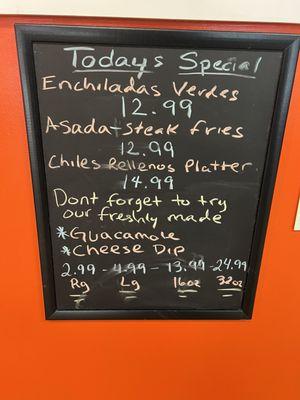 Todays Special
Enchiladas Verdes
12.99
Asada + steak fries
12.99
Chiles Rellenos Platter
14.99
Dont forget to try
our freshly made
*Guacamole
*Cheese Dip
2.99 - 4.99 - 13.99 - 24.99
Rg Lg 16oz 32oz